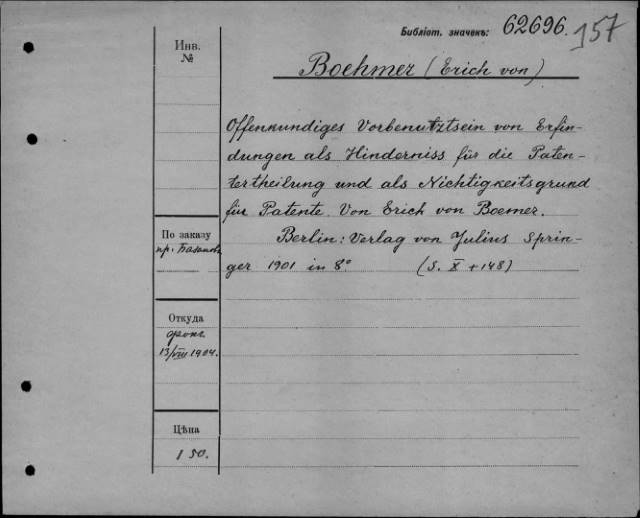 Библіот. значекъ: 62696. 157
Инв.
№
Boehmer (Erich von)
Offenkundiges Vorbenutztsein von Erfin-
dungen als Hinderniss für die Paten-
tertheilung und als Nichtigkeitsgrund
für Patente. Von Erich von Boemer.
Berlin: Verlag von Julius Sprin-
ger 1901 in 8° (S. X + 148)
По заказу
пр. Базанова
Откуда
13/VIII 1904.
Цѣна
1 50.